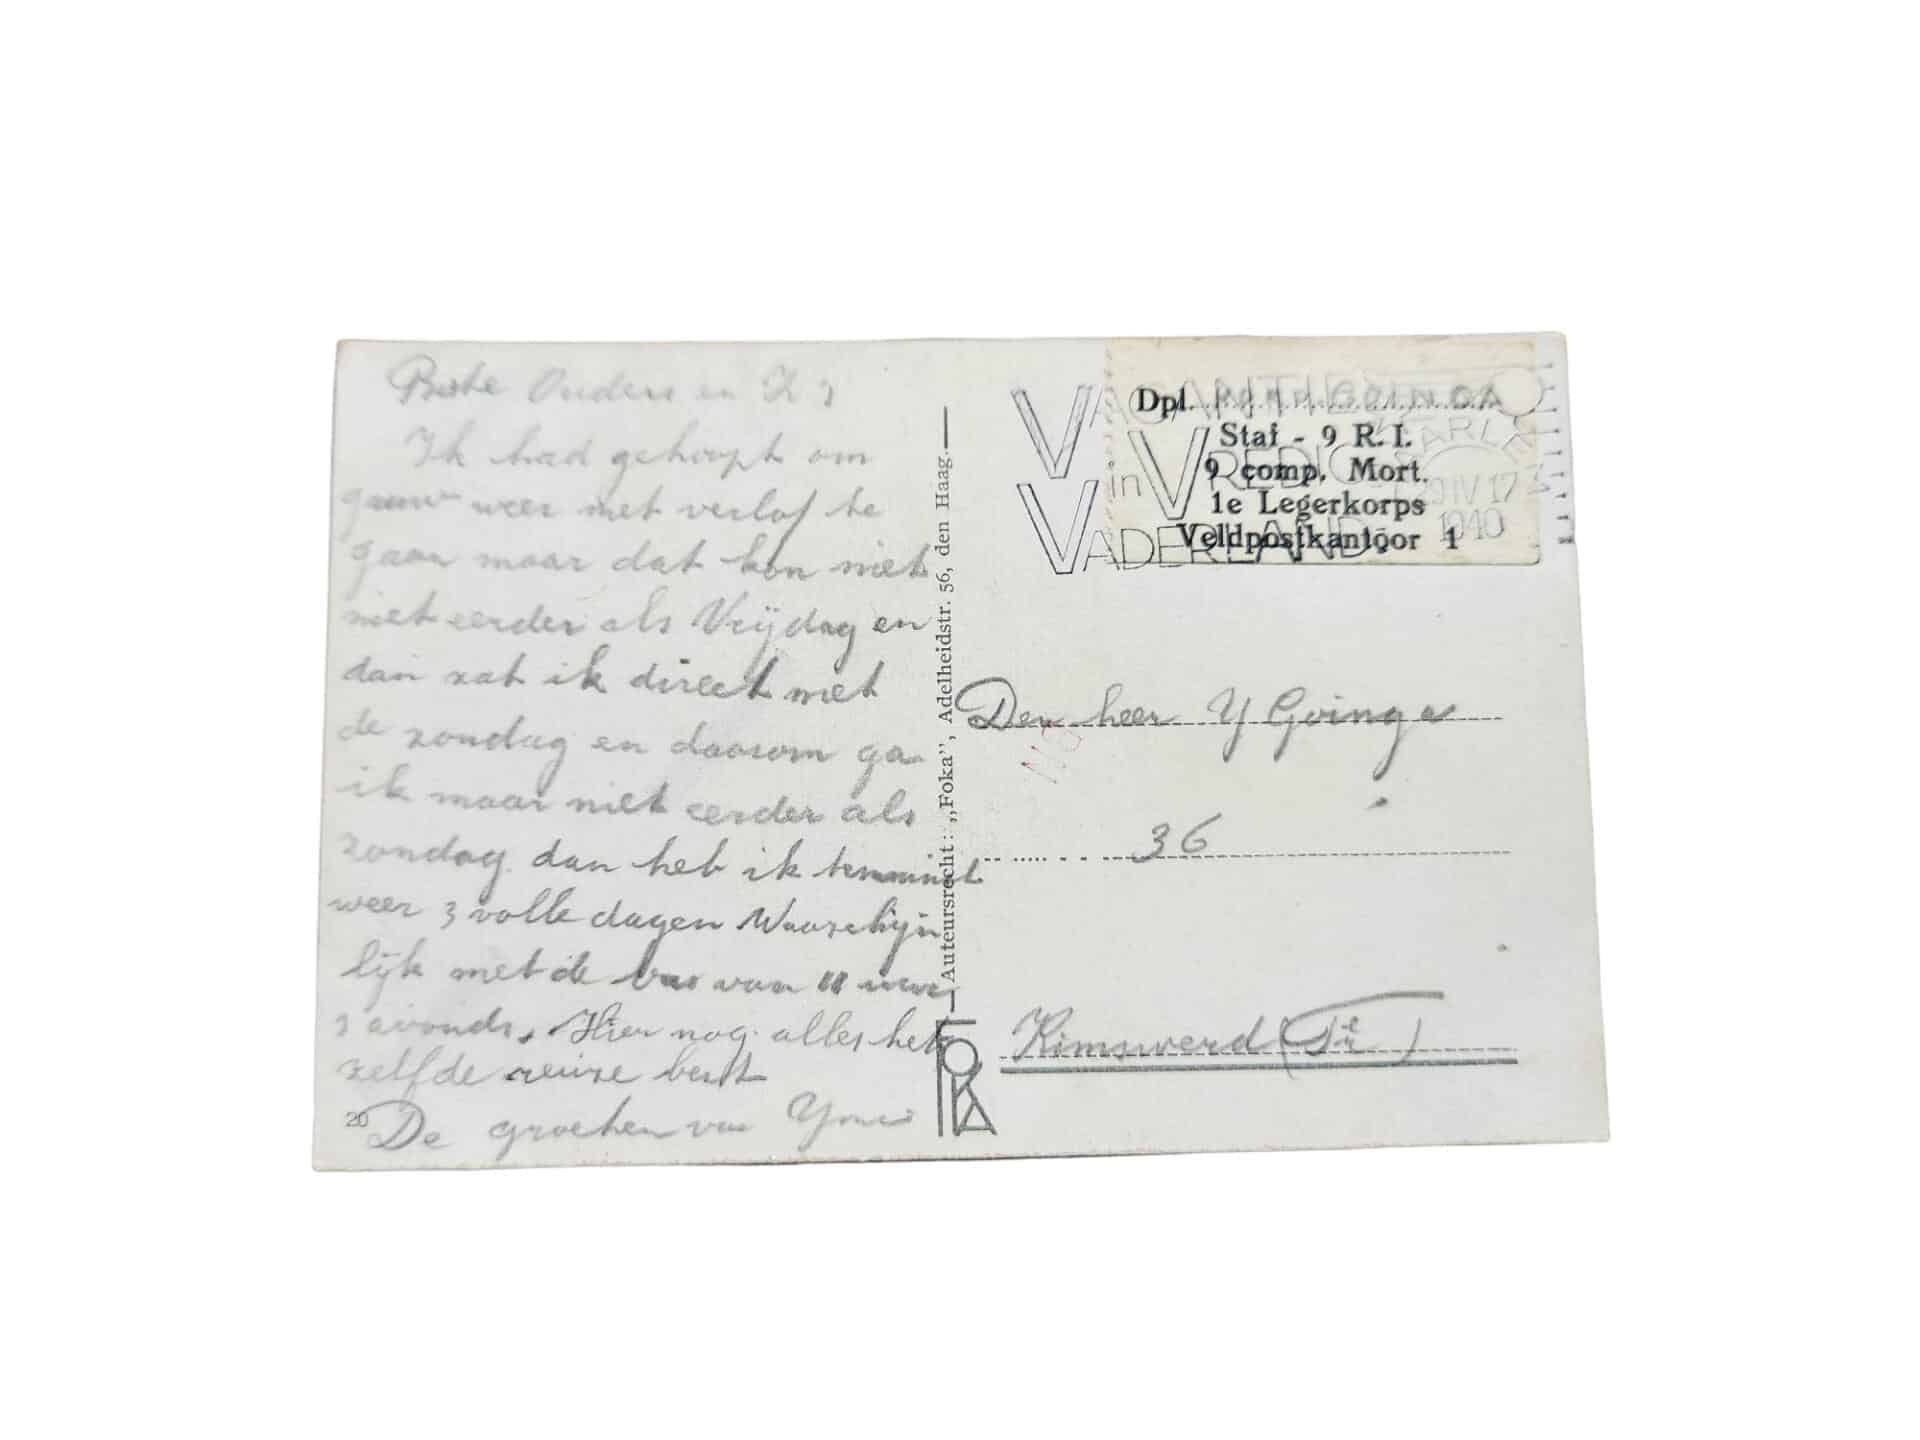 Beste Ouders en Z
Ik had gehoopt om
gauw weer met verlof te
gaan maar dat kon niet
niet eerder als Vrijdag en
dan zat ik direct met
de zondag en daarom ga
ik maar niet eerder als
zondag. dan heb ik temminst
weer 3 volle dagen Waarschijn
lijk met de bus van 11 uur
s avonds. Hier nog alles het
zelfde reuze best
De groeten van
20
Auteursrecht: „Foka", Adelheidstr. 56, den Haag.
FOKA
VACANTIE
in VREDIG
VADERLAND
HAARLEM
29 IV 17
1940
Dpl. GOINGA
Staf - 9 R. I.
9 comp. Mort.
1e Legerkorps
Veldpostkantoor 1
Den heer Y Goinga
36
Kimswerd (Fr)